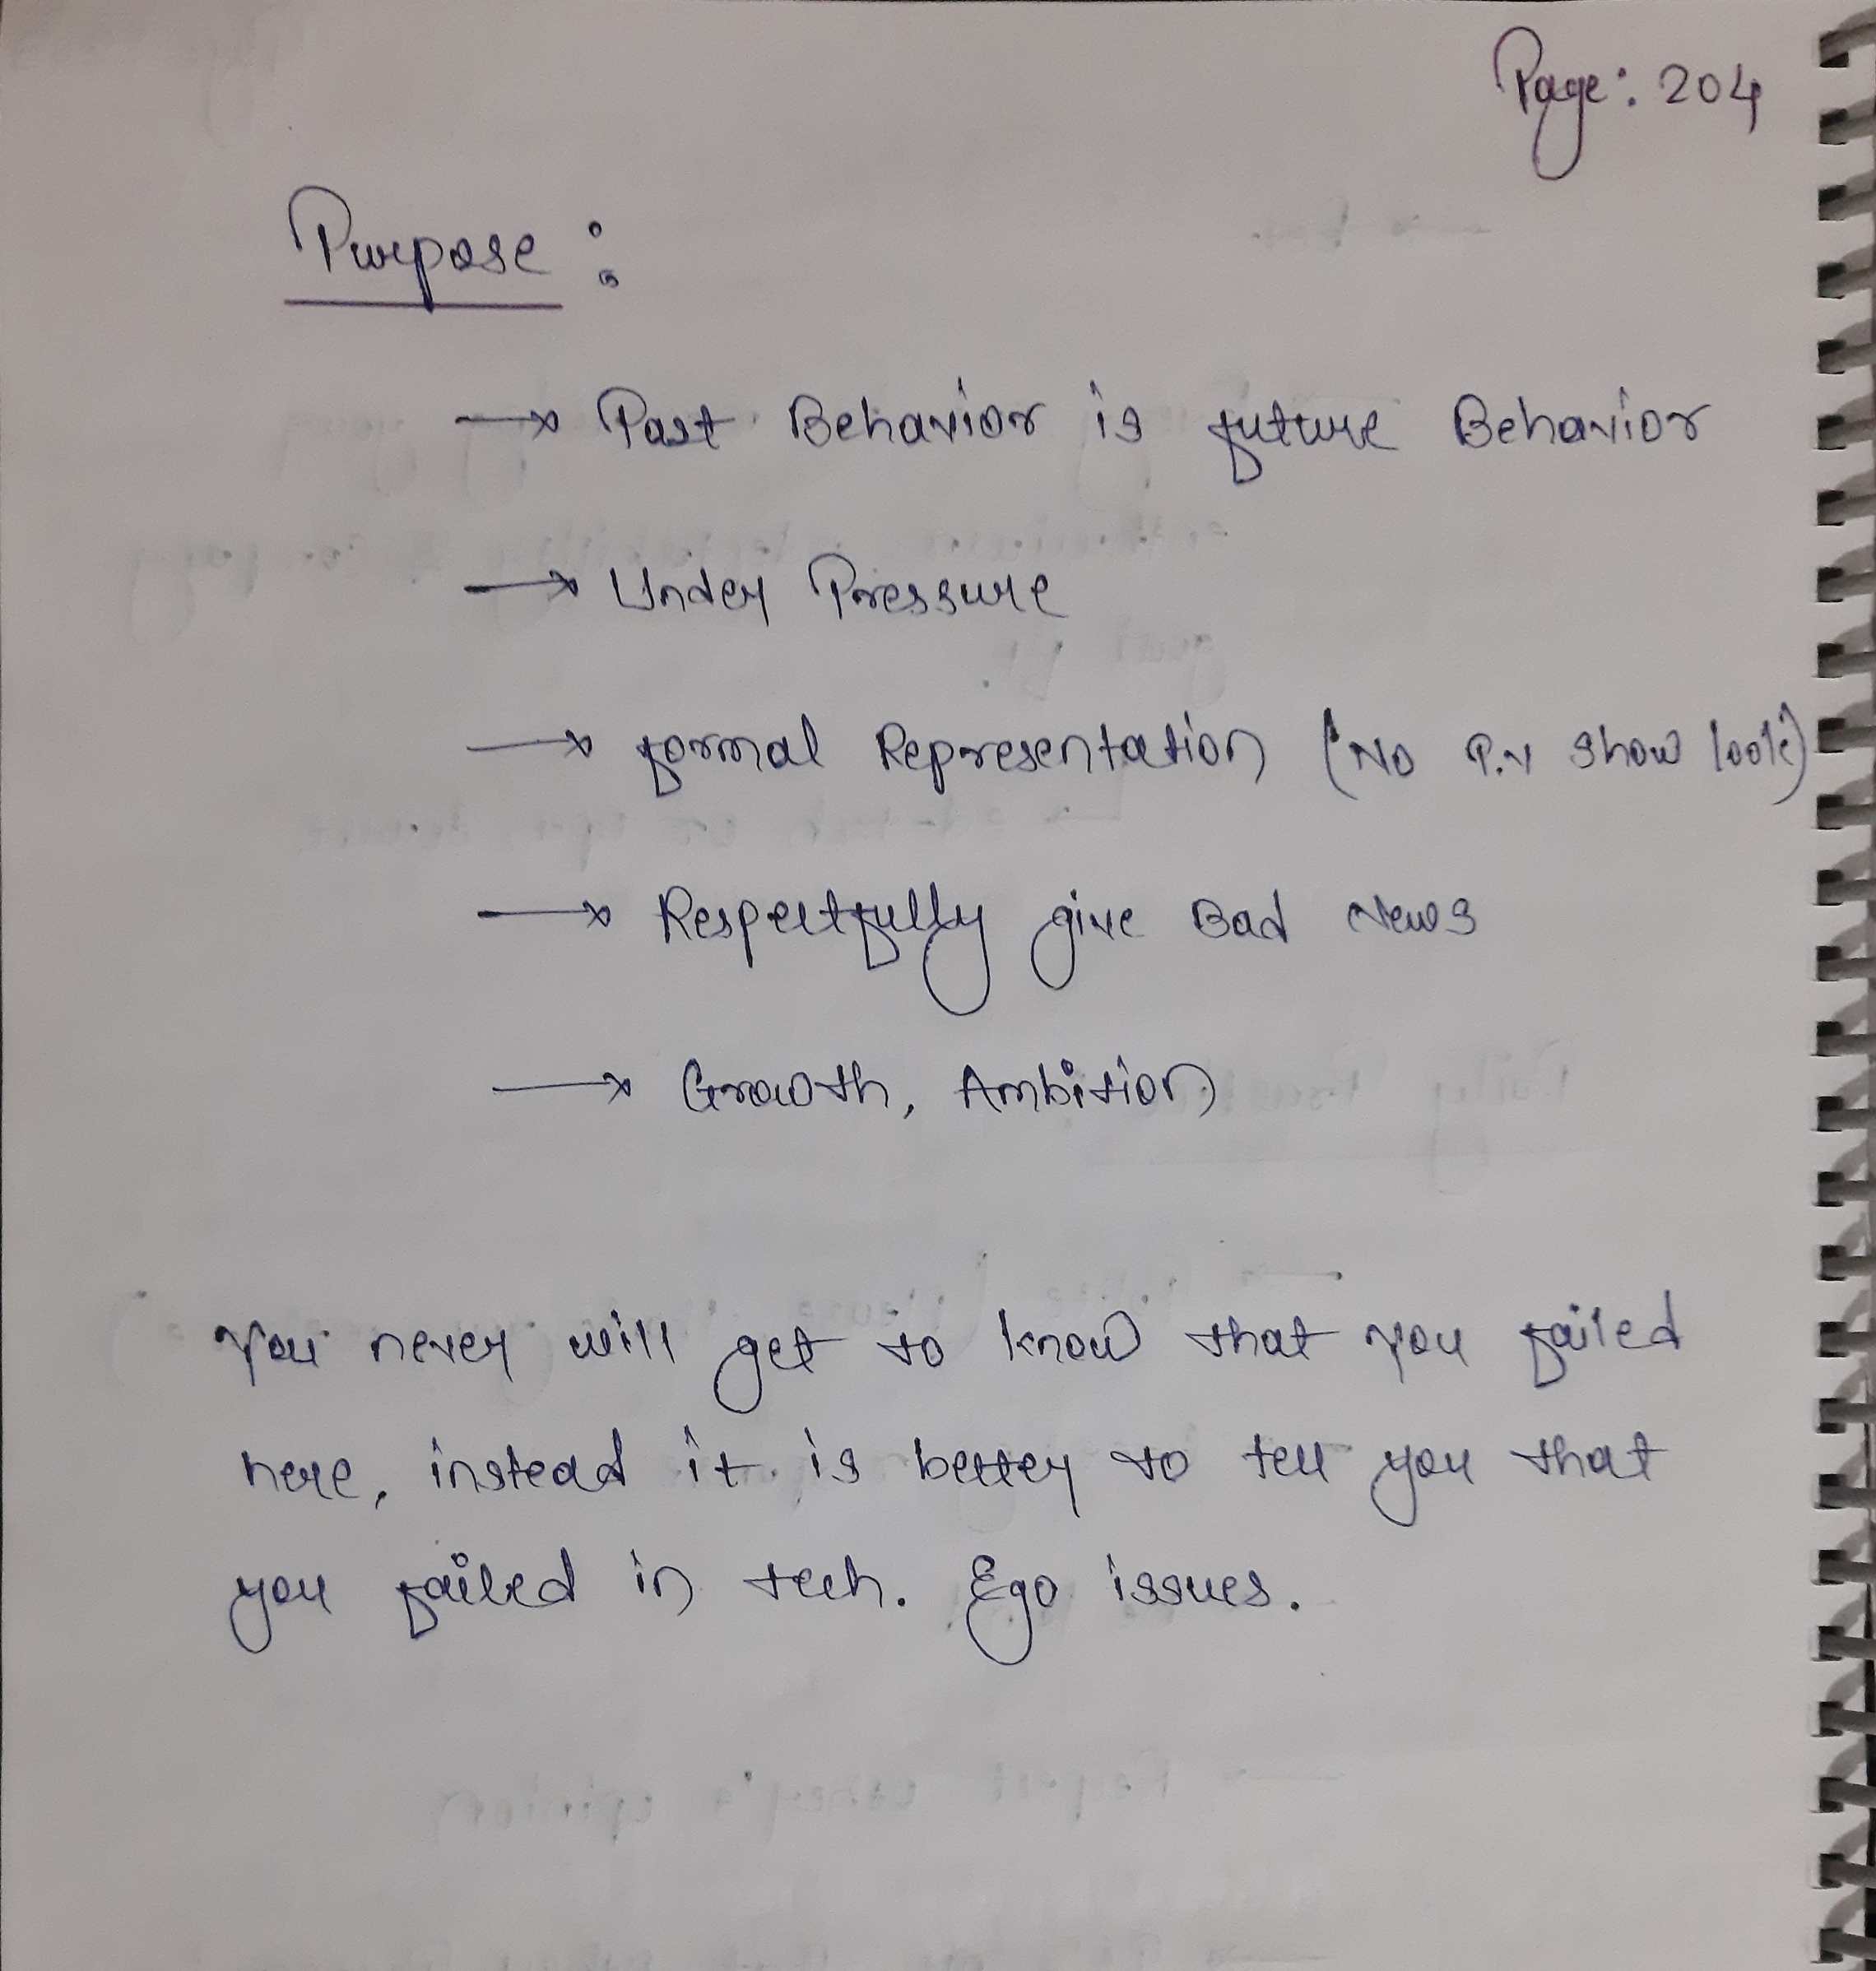 Page: 204
Purpose :
→ Past Behavior is future Behavior
→ Under Pressure
→ formal Representation (No P.N show look)
→ Respectfully give Bad News
→ Growth, Ambition
You never will get to know that you failed
here, instead it is better to tell you that
you failed in tech. Ego issues.